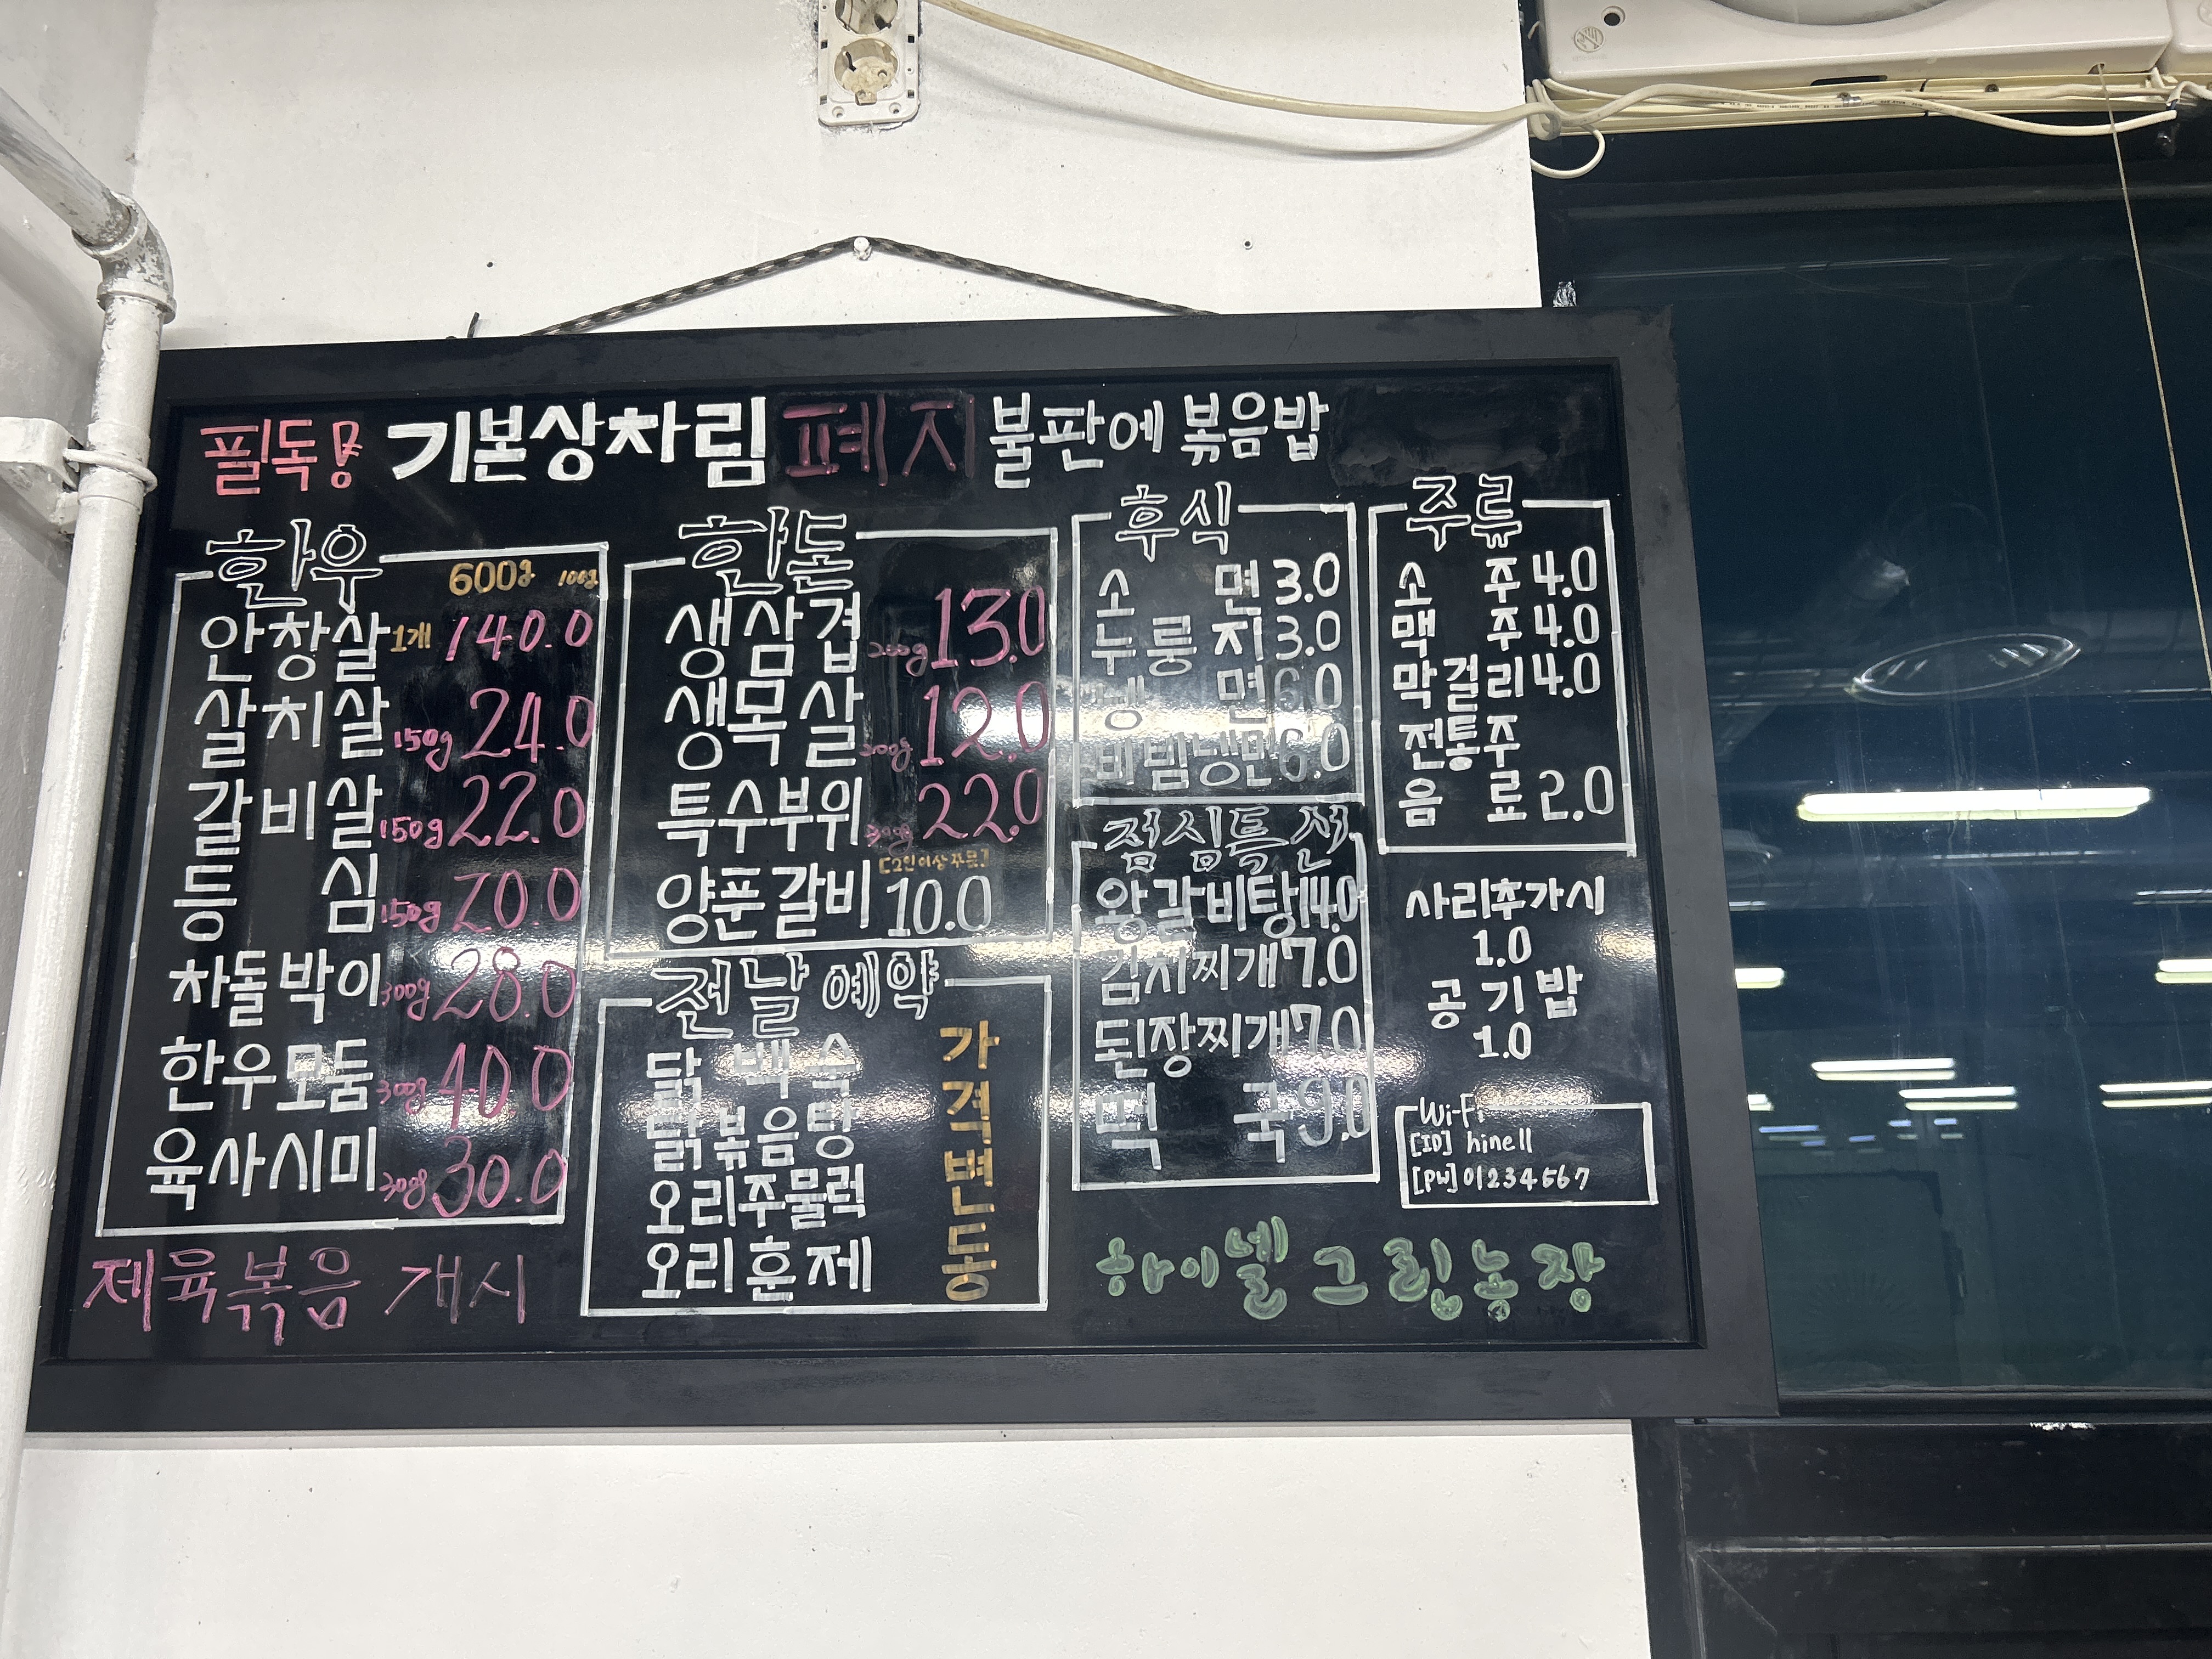 필독!! 기본상차림 폐지 불판에 볶음밥
한우
600g 100g
안창살 1개 140.0
살치살 150g 24.0
갈비살 150g 22.0
등심 150g 20.0
차돌박이 300g 28.0
한우모둠 300g 40.0
육사시미 30.0
제육볶음 개시
한돈
생삼겹 200g 13.0
생목살 200g 12.0
특수부위 22.0
[2인이상주문]
양푼갈비 10.0
전날 예약
닭백숙
닭볶음탕
오리주물럭
오리훈제
가격변동
후식
소면 3.0
누룽지 3.0
냉면 6.0
비빔냉면 6.0
점심특선
왕갈비탕 14.0
김치찌개 7.0
된장찌개 7.0
떡국 9.0
주류
소주 4.0
맥주 4.0
막걸리 4.0
전통주
음료 2.0
사리추가시
1.0
공기밥
1.0
Wi-Fi
[ID] hinell
[PW] 01234567
하이넬그린농장